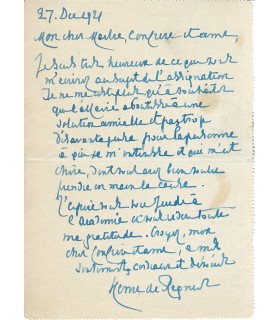 27. Dec 1921
Mon cher Maître, Confrère et ami,
Je suis très heureux de ce que vous
m'écrivez au sujet de l'assignation
Je ne me suis plus qu'à souhaiter
que l'affaire aboutisse à une
solution amiable et pas trop
désavantageuse pour la personne
à qui je m'intéresse et qui m'est
chère, dont vous avez bien voulu
prendre en main la cause.
J'espère vous voir jeudi à
l'Académie et vous redire toute
ma gratitude. Croyez, mon
cher Confrère et ami, à mes
sentiments cordiaux et dévoués
Henri de Régnier